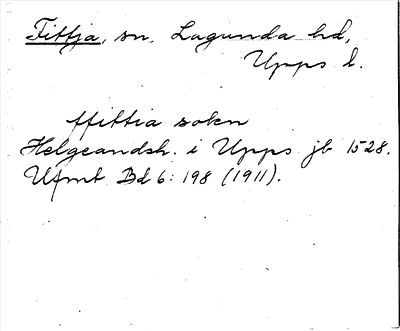 Fittja, sn. Lagunda hd,
Upps l.
ffittia sokn
Helgeandsh. i Upps jb 1528.
Ufmt Bd 6: 198 (1911).